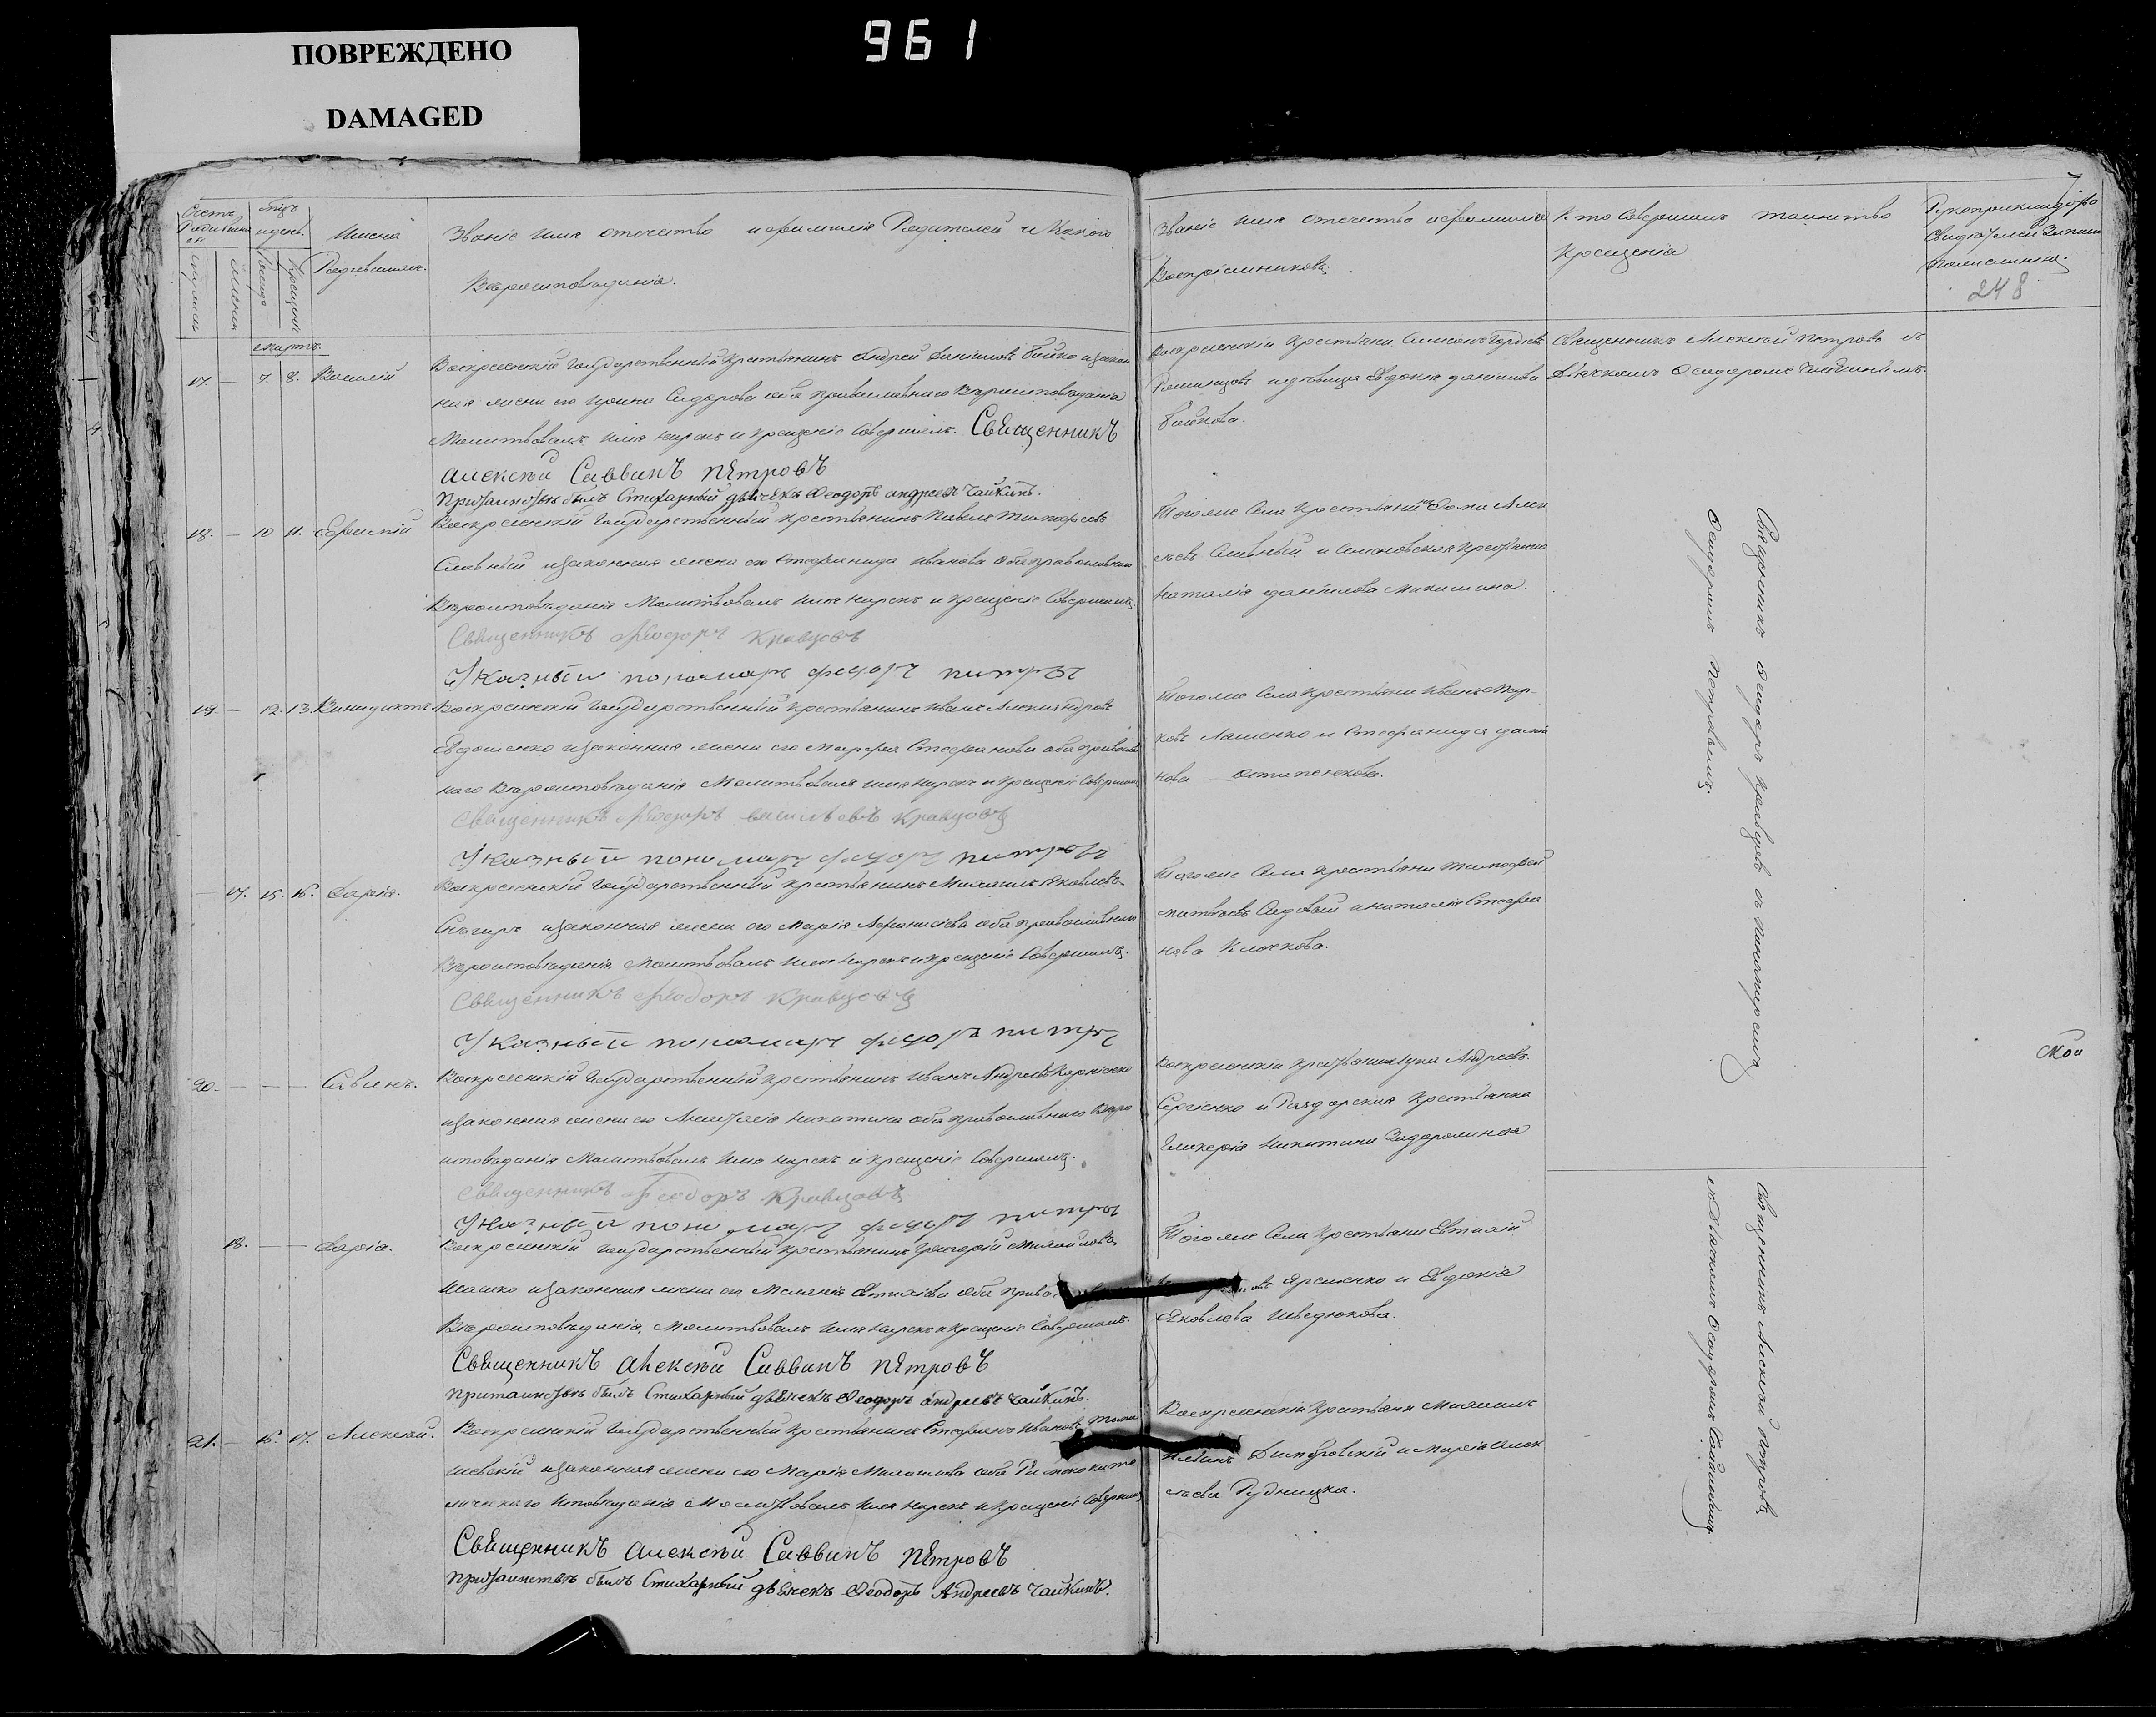 ПОВРЕЖДЕНО
DAMAGED
961
Счетъ Родившихся
Мѣсяцъ и день
Имена Родившихся.
Званіе имя отечество и фамилія Родителей и Какого
Вѣроисповѣданія.
Званіе имя отечество и фамилія
Воспріемниковъ.
Кто Совершалъ таинство
Крещенія
Рукоприкладство
Свидѣтелей записи
по желанію.
248
Мартъ.
17. — 7. 8. Василій
Воскресенскій Государственный крестьянинъ Андрей Даніиловъ Бойко и закон
ная жена его Ирина Сидорова оба православнаго Вѣроисповѣданія
Молитвовалъ имя нарекъ и крещеніе Совершилъ. Священникъ
алексѣй Саввинъ пѣтровъ
При таинствѣ былъ Стихарный дьячекъ Ѳеодоръ андреевъ чайкинъ.
Воскресенскіи крестьяни Симеонъ Гордѣевъ
и дѣвица Евдокія даніилова
Бойкова.
Священникъ Алексѣй Петровъ съ
Дьячкомъ Ѳеодоромъ Чайкинымъ.
18. — 10 11. Ефимій
Воскресенскій Государственный крестьянинъ Павелъ Тимофеевъ
Сливный и законная жена его Стефанида Иванова оба православнаго
Вѣроисповѣданія Молитвовалъ имя нарекъ и крещеніе Совершилъ.
Священникъ Ѳеодоръ Кравцовъ
Указный пономарь федоръ питровъ
Тогоже Села крестьянинъ Фома
Сливный и Семеновская крестьянка
Наталія даніилова Микишина.
19. — 12. 13. Винидиктъ.
Воскресенскій Государственный крестьянинъ Иванъ Александровъ
Евдошенко и законная жена его Марфа Стефанова оба православ
наго Вѣроисповѣданія Молитвовалъ имя нарекъ и крещеніе Совершилъ
Священникъ Ѳеодоръ васильевъ Кравцовъ
Указный пономарь федоръ питровъ
Тогоже Села крестьяни Иванъ Мар-
ковъ Лашенко и Стефанида дамиа
нова Остапенкова.
— 17. 15. 16. Дарія.
Воскресенскій Государственный крестьянинъ Михаилъ Яковлевъ
Снегирь и законная жена его Марія Афанасіева оба православнаго
Вѣроисповѣданія, Молитвовалъ имя нарекъ и крещеніе Совершилъ.
Священникъ Ѳеодоръ Кравцовъ
Указный пономарь федоръ питровъ
Тогоже Села крестьяни Тимофей
Матвѣевъ Садовый и наталія Стефа
нова Клочкова.
Священникъ Ѳеодоръ Кравцовъ съ пономаремъ
Ѳеодоромъ Петровымъ.
20. — — — Савинъ.
Воскресенскій Государственный крестьянинъ Иванъ Андреевъ Корніенко
и законная жена его Анастасія Никитина оба православнаго Вѣро
исповѣданія Молитвовалъ имя нарекъ и крещеніе Совершилъ.
Священникъ Ѳеодоръ Кравцовъ
Указный пономарь федоръ питровъ
Воскресенскіи крестьянинъ Лука Андреевъ
Сергіенко и Раздорская крестьянка
Гликерія Никитина Задорожняя
18. — — Дарія.
Воскресенскій Государственный крестьянинъ Григорій Михайловъ
Исашко и законная жена его Меланія Евтихіева оба право
Вѣроисповѣданія, Молитвовалъ имя нарекъ и крещеніе Совершилъ.
Священникъ алексѣй Саввинъ пѣтровъ
При таинствѣ былъ Стихарный дьячекъ Ѳеодоръ андреевъ чайкинъ.
Тогоже Села крестьяни Евтихій
Яременко и Евдокія
Яковлева Шведюкова.
21. — 16. 17. Алексѣй.
Воскресенскій Государственный крестьянинъ Стефанъ Ивановъ
и законная жена его Марія Михайлова оба Римско като
лическаго исповѣданія Молитвовалъ имя нарекъ и крещеніе Совершилъ
Священникъ алексѣй Саввинъ пѣтровъ
При таинствѣ былъ Стихарный дьячекъ Ѳеодоръ Андреевъ чайкинъ.
Воскресенскій крестьяни Михаилъ
Домбровскій и Марія Алек
сѣева Рудницка.
Священникъ Алексѣй Петровъ
съ Дьячкомъ Ѳеодоромъ Чайкинымъ.